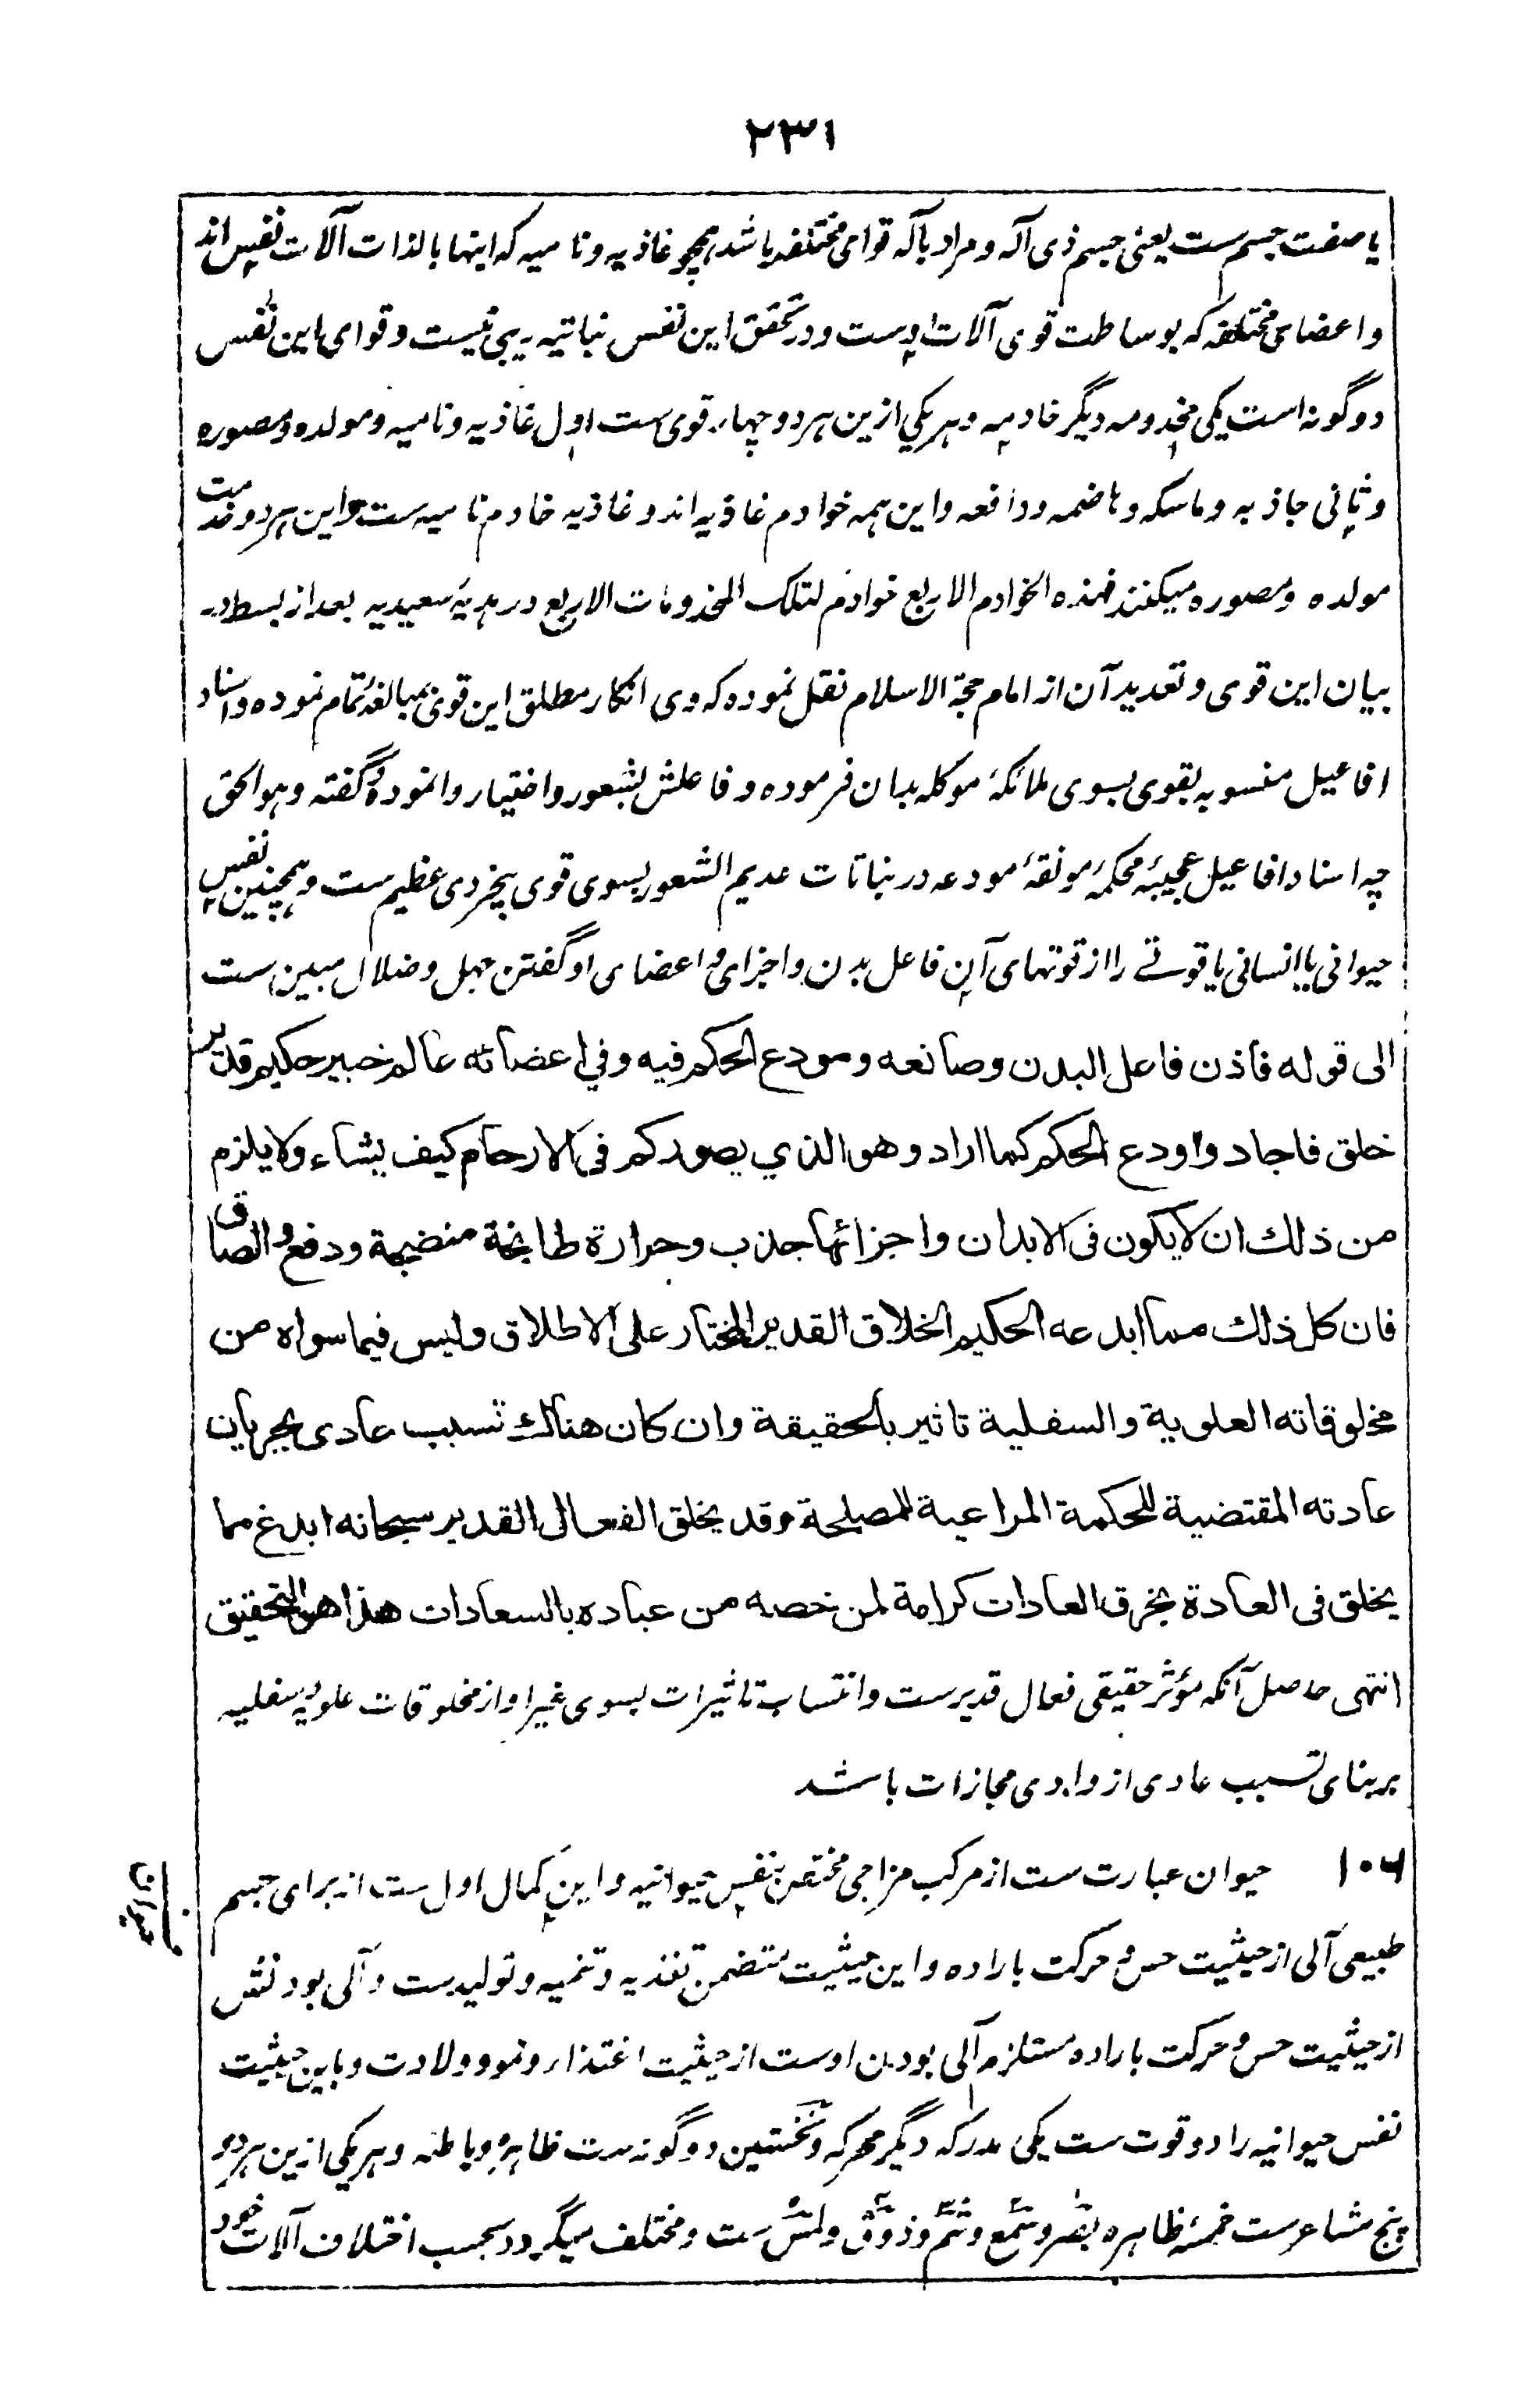 ۲۳۱
یا صفت جسم ست یعنی جسم ذی آله و مراد بآله قوای مختلفه باشد همچو غاذیه و نامیه که اینها بالذات آلات نفس اند
و اعضای مختلفه که بوساطت قوی آلات اوست و در تحقق این نفس نباتیه ریبی نیست و قوای این نفس
دو گونه است یکی مخدومه دیگر خادمه و هر یکی ازین هر دو چهار قوی ست اول غاذیه و نامیه و مولده و مصوره
و ثانی جاذبه و ماسکه و هاضمه و دافعه و این همه خوادم غاذیه اند و غاذیه خادم نامیه ست و این هر دو خدمت
مولده و مصوره میکنند فهذه الخوادم الاربع خوادم لتلک المخدومات الاربع در هدیهٔ سعیدیه بعد از بسط در
بیان این قوی و تعدید آن از امام حجة الاسلام نقل نموده که وی انکار مطلق این قوی بمبالغهٔ تمام نموده و اسناد
افاعیل منسوبه بقوی بسوی ملائکهٔ موکله بدان فرموده و فاعلش بشعور و اختیار وانموده و گفته و هو الحق
چه اسناد افاعیل عجیبهٔ محکمهٔ مونقهٔ مودعه در نباتات عدیم الشعور بسوی قوی بیخردی عظیم ست و همچنین نفس
حیوانی یا انسانی یا قوتے را از قوتهای آن فاعل بدن و اجزای و اعضای او گفتن جهل و ضلال مبین ست
الی قوله فاذن فاعل البدن وصانعه ومودع الحکم فیه وفی اعضائه عالم خبیر حکیم قدیر
خلق فاجاد واودع الحکم کما اراد وهو الذی یصورکم فی الارحام کیف یشاء ولا یلزم
من ذلك ان لا یکون فی الابدان واجزائها جذب وحرارة طابخة منضیجة ودفع والصاق
فان کل ذلك مما ابدعه الحکیم الخلاق القدیر المختار علی الاطلاق ولیس فیما سواه من
مخلوقاته العلویة والسفلیة تاثیر بالحقیقة وان کان هنالك تسبب عادی بجریان
عادته المقتضیة للحکمة المراعیة للمصلحة وقد یخلق الفعال القدیر سبحانه ابدع مما
یخلق فی العادة بخرق العادات کرامة لمن خصه من عباده بالسعادات هذا هو التحقیق
انتهی حاصل آنکه مؤثر حقیقی فعال قدیر ست و انتساب تاثیرات بسوی غیر او از مخلوقات علویه سفلیه
بر بنای تسبب عادی از وادی مجازات باشد
۱۰۶ حیوان عبارت ست از مرکب مزاجی مختص بنفس حیوانیه و این کمال اول ست از برای جسم
حیوان
طبیعی آلی از حیثیت حس و حرکت باراده و این حیثیت متضمن تغذیه و تنمیه و تولید ست و آلی بودنش
از حیثیت حس و حرکت باراده مستلزم آلی بودن اوست از حیثیت اغتذاء و نمو و ولادت و باین حیثیت
نفس حیوانیه را دو قوت ست یکی مدرکه دیگر محرکه و نخستین دو گونه ست ظاهره و باطنه و هر یکی ازین هر دو
پنج مشاعر ست خمسهٔ ظاهره بصر و سمع و شم و ذوق و لمس ست و مختلف میگردد بحسب اختلاف آلات خود